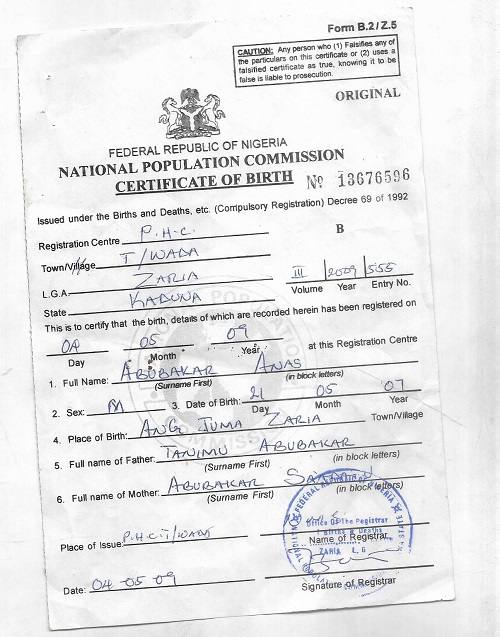 Form B.2/Z.5
CAUTION: Any person who (1) Falsifies any of
the particulars on this certificate or (2) uses a
falsified certificate as true, knowing it to be
false is liable to prosecution.
ORIGINAL
FEDERAL REPUBLIC OF NIGERIA
NATIONAL POPULATION COMMISSION
CERTIFICATE OF BIRTH No 13676596
Issued under the Births and Deaths, etc. (Compulsory Registration) Decree 69 of 1992
Registration Centre P.H.C. B
Town/Village T/WADA
L.G.A. ZARIA III 2009 555
Volume Year Entry No.
State KADUNA
This is to certify that the birth, details of which are recorded herein has been registered on
04 05 09 at this Registration Centre
Day Month Year
1. Full Name: ABUBAKAR ANAS
(Surname First) (in block letters)
2. Sex: M 3. Date of Birth: 21 05 07
Day Month Year
4. Place of Birth: ANG JUMA ZARIA Town/Village
5. Full name of Father: TANIMU ABUBAKAR
(Surname First) (in block letters)
6. Full name of Mother: ABUBAKAR
(Surname First) (in block letters)
Office Of the Registrar
Births & Deaths
Place of Issue: P.H.C T/WADA Name of Registrar
ZARIA L.G
Date: 04-05-09
Signature of Registrar